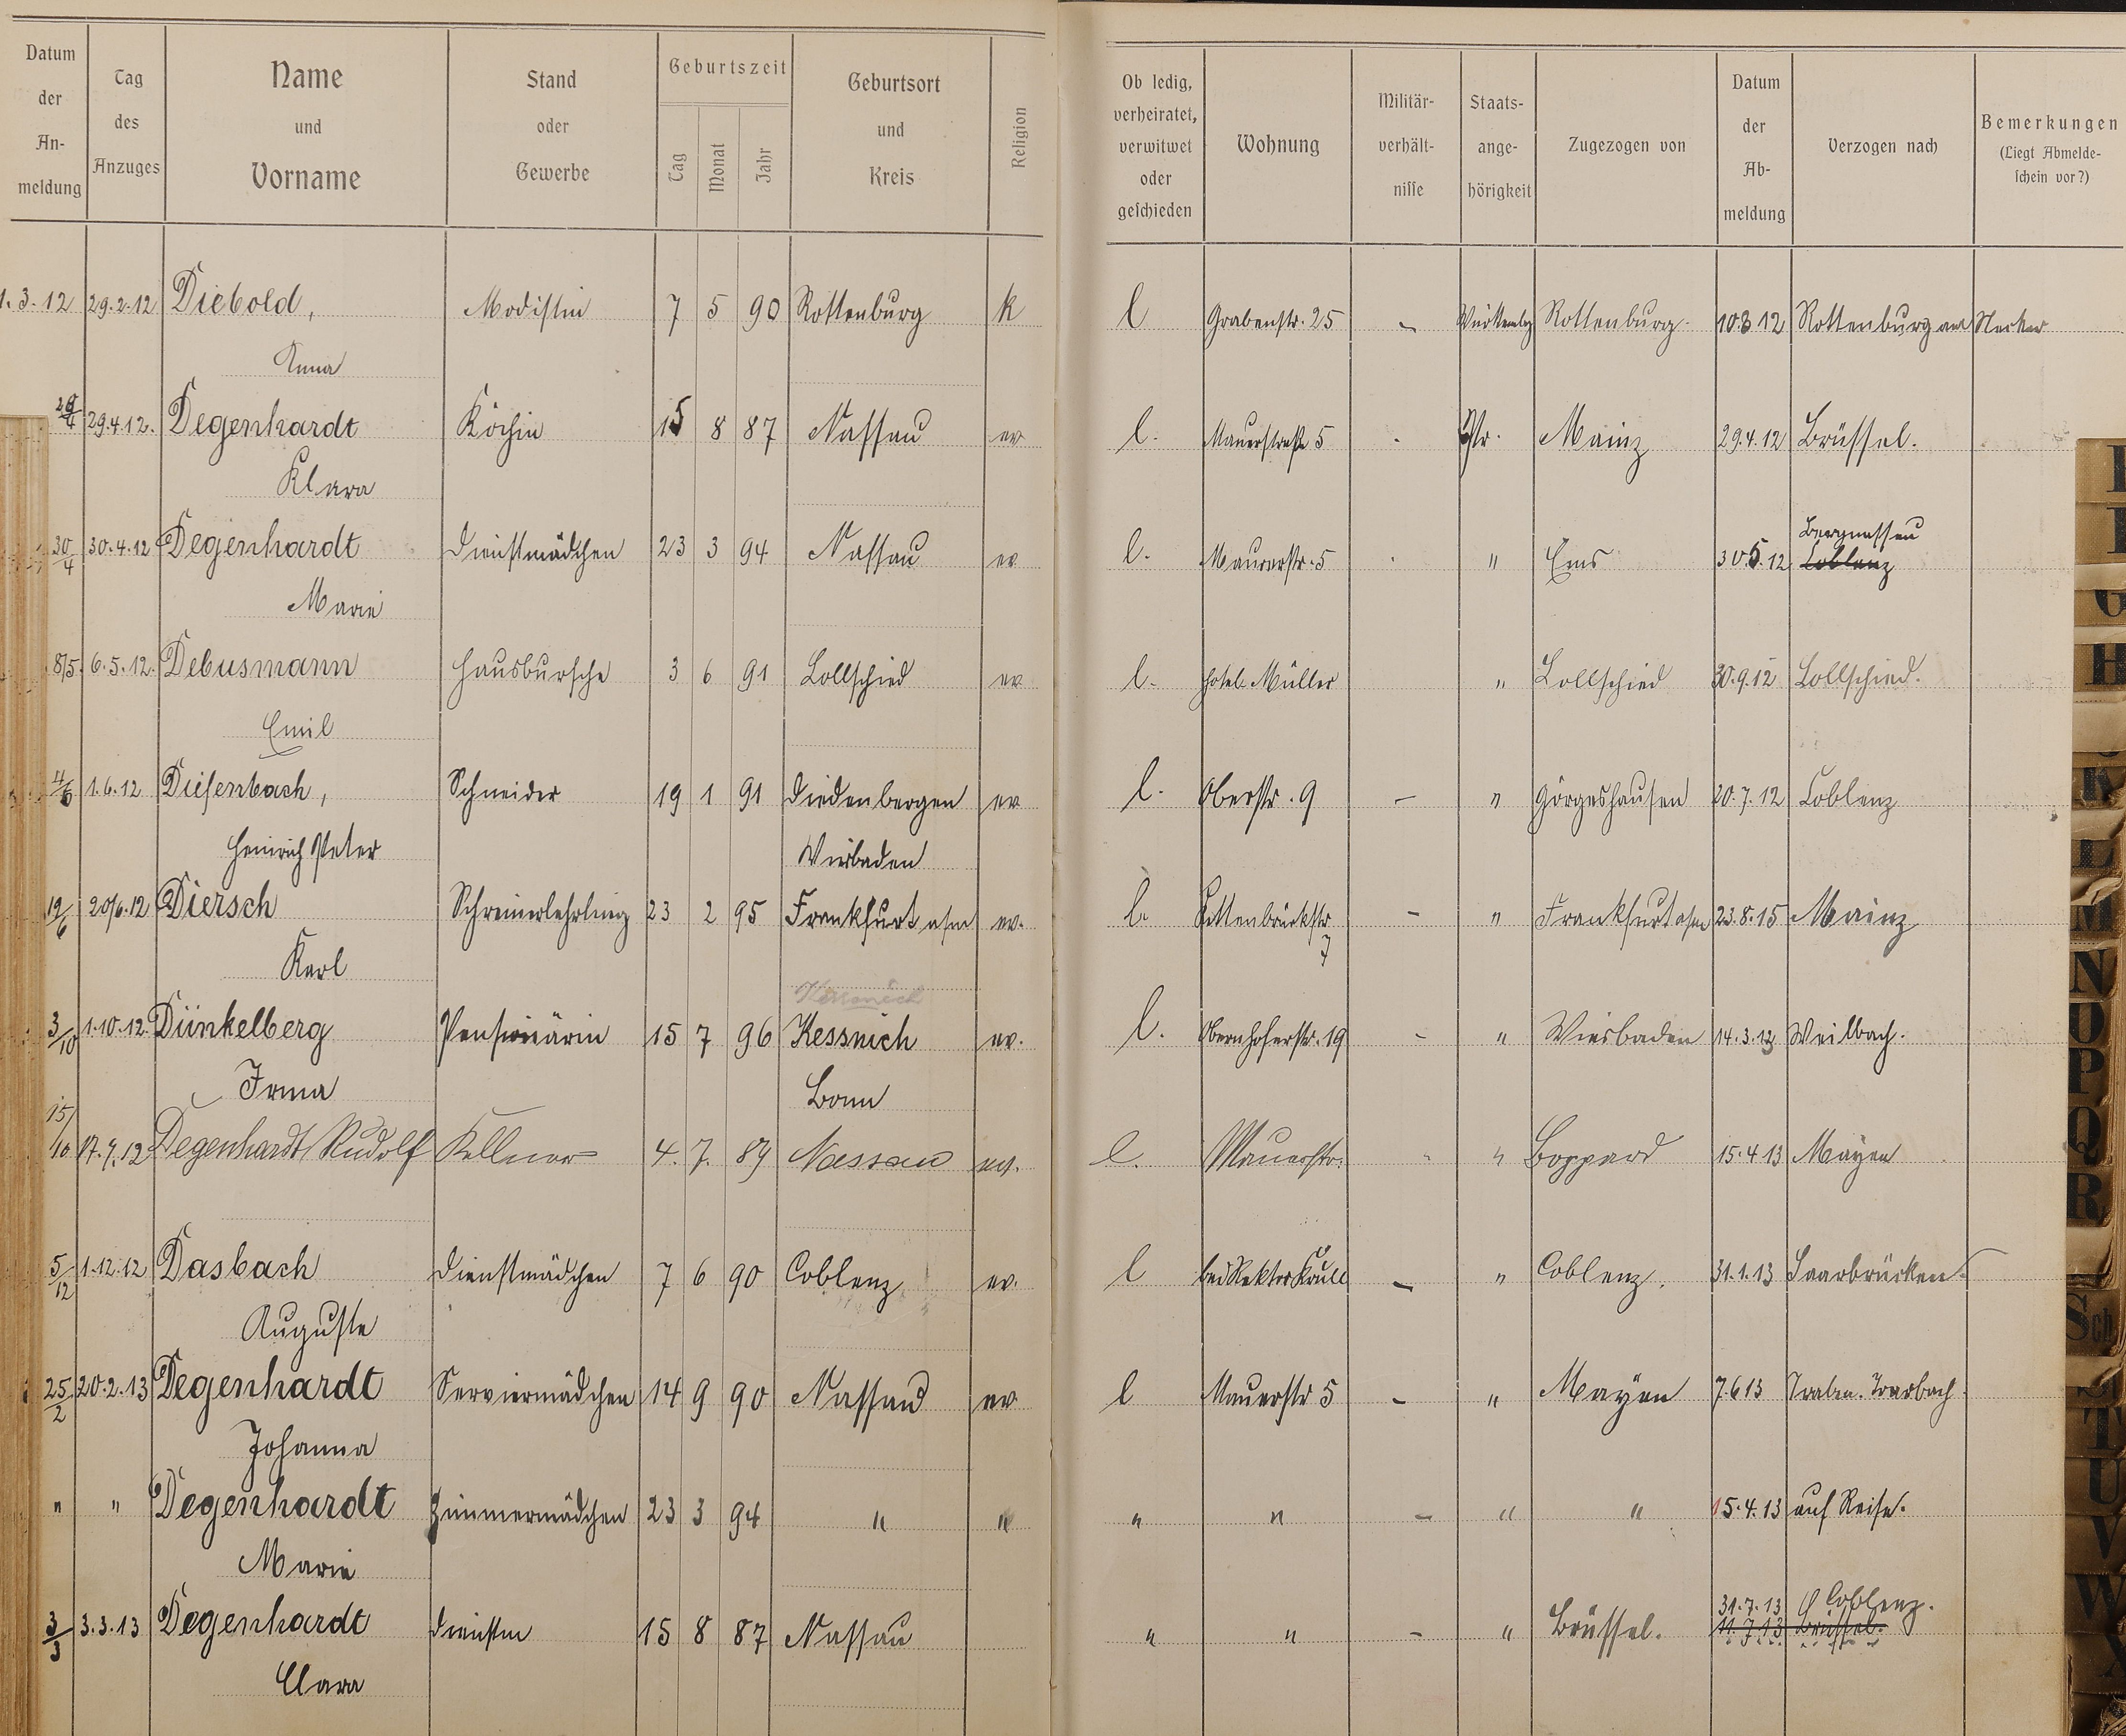 Datum der Anmeldung | Tag des Anzuges | Name und Vorname | Stand oder Gewerbe | Geburtszeit Tag Monat Jahr | Geburtsort und Kreis | Religion | Ob ledig, verheiratet, verwitwet oder geschieden | Wohnung | Militärverhältnisse | Staatsangehörigkeit | Zugezogen von | Datum der Abmeldung | Verzogen nach | Bemerkungen (Liegt Abmeldeschein vor?)
1.3.12 29.2.12 Diebold, Modistin 7 5 90 Rottenburg k l Grabenstr. 25 - Rottenburg 10.3 12 Rottenburg am Neckar
Anna
29/4 29.4.12. Degenhardt Köchin 15 8 87 Nassau ev l. Mauerstraße 5 - Pr. Mainz 29.4.12 Brüssel.
Klara
30/4 30.4.12 Degenhardt Dienstmädchen 23 3 94 Nassau ev l. Mauerstr. 5 - " Ems 30.5.12 Bergnassau Coblenz
Marie
8/5. 6.5.12. Debusmann Hausbursche 3 6 91 Lollschied ev l. Hotel Müller " Lollschied 30.9.12 Lollschied.
Emil
4/6 1.6.12 Diefenbach, Schneider 19 1 91 Diedenbergen ev l. Oberstr. 9 - " Görgeshausen 20.7.12 Coblenz
Heinrich Peter Wiesbaden
19/6 20/6.12 Diersch Schreinerlehrling 23 2 95 Frankfurt a/m ev. l. Kettenbrückstr 7 - " Frankfurt a/m 23.8.15 Mainz
Karl
3/10 1.10.12. Dünkelberg Pensionärin 15 7 96 Kessnich ev. l. Obernhoferstr. 19 - " Wiesbaden 14.3.13 Weilbach.
Irma Bonn
15/10 17.9.12 Degenhardt Rudolf Kellner 4. 7. 89 Nassau ev. l. Mauerstr. - " Boppard 15.4 13 Mayen
5/12 1.12.12 Dasbach Dienstmädchen 7 6 90 Coblenz ev. l bei Rektor Krull - " Coblenz. 31.1.13 Saarbrücken.
Auguste
25/2 20.2.13 Degenhardt Serviermädchen 14 9 90 Nassau ev l Mauerstr 5 - " Mayen 7.6 13 Traben-Trarbach.
Johanna
" " Degenhardt Zimmermädchen 23 3 94 " " " " - " " 15.4.13 auf Reise.
Marie
3/3 3.3.13 Degenhardt Dienstm 15 8 87 Nassau " " - " Brüssel. 31.7.13 Coblenz. 11.7.13 Brüssel.
Clara
G
H
K
L
M
N
O
P
Q
R
Sch
T
U
V
W
X